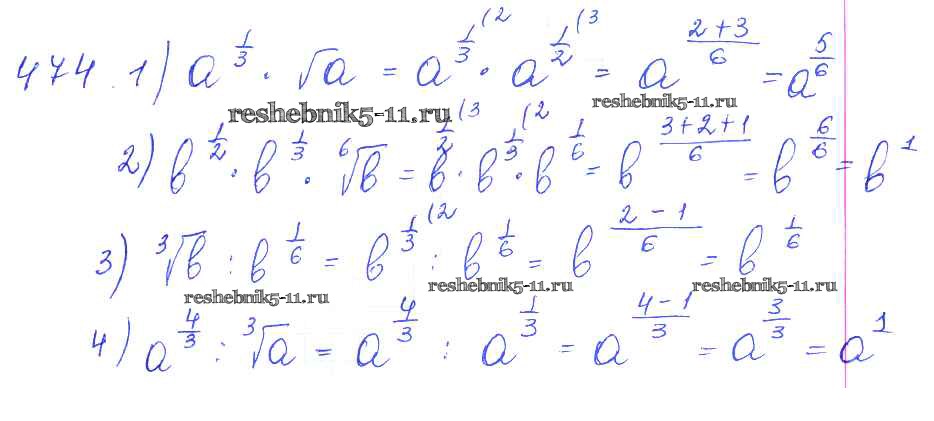 474. 1) a^{1/3} · √a = a^{1/3 (2} · a^{1/2 (3} = a^{(2+3)/6} = a^{5/6}
reshebnik5-11.ru reshebnik5-11.ru
2) b^{1/2} · b^{1/3} · ⁶√b = b^{1/2 (3} · b^{1/3 (2} · b^{1/6} = b^{(3+2+1)/6} = b^{6/6} = b^1
3) ³√b : b^{1/6} = b^{1/3 (2} : b^{1/6} = b^{(2-1)/6} = b^{1/6}
reshebnik5-11.ru reshebnik5-11.ru reshebnik5-11.ru
4) a^{4/3} : ³√a = a^{4/3} : a^{1/3} = a^{(4-1)/3} = a^{3/3} = a^1